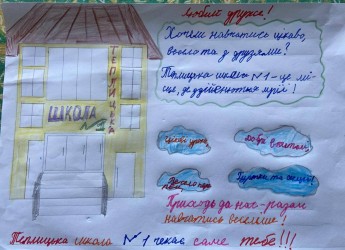 Любий друже!
Хочеш навчатись цікаво,
весело та з друзями?
Теплицька школа №1 - це мі-
сце, де здійснюються мрії!
ТЕПЛИЦЬКА
ШКОЛА
№1
Цікаві уроки
Добрі вчителі
Гуртки та секції
Приходь до нас - разом
навчатись веселіше!
Теплицька школа №1 чекає саме тебе!!!